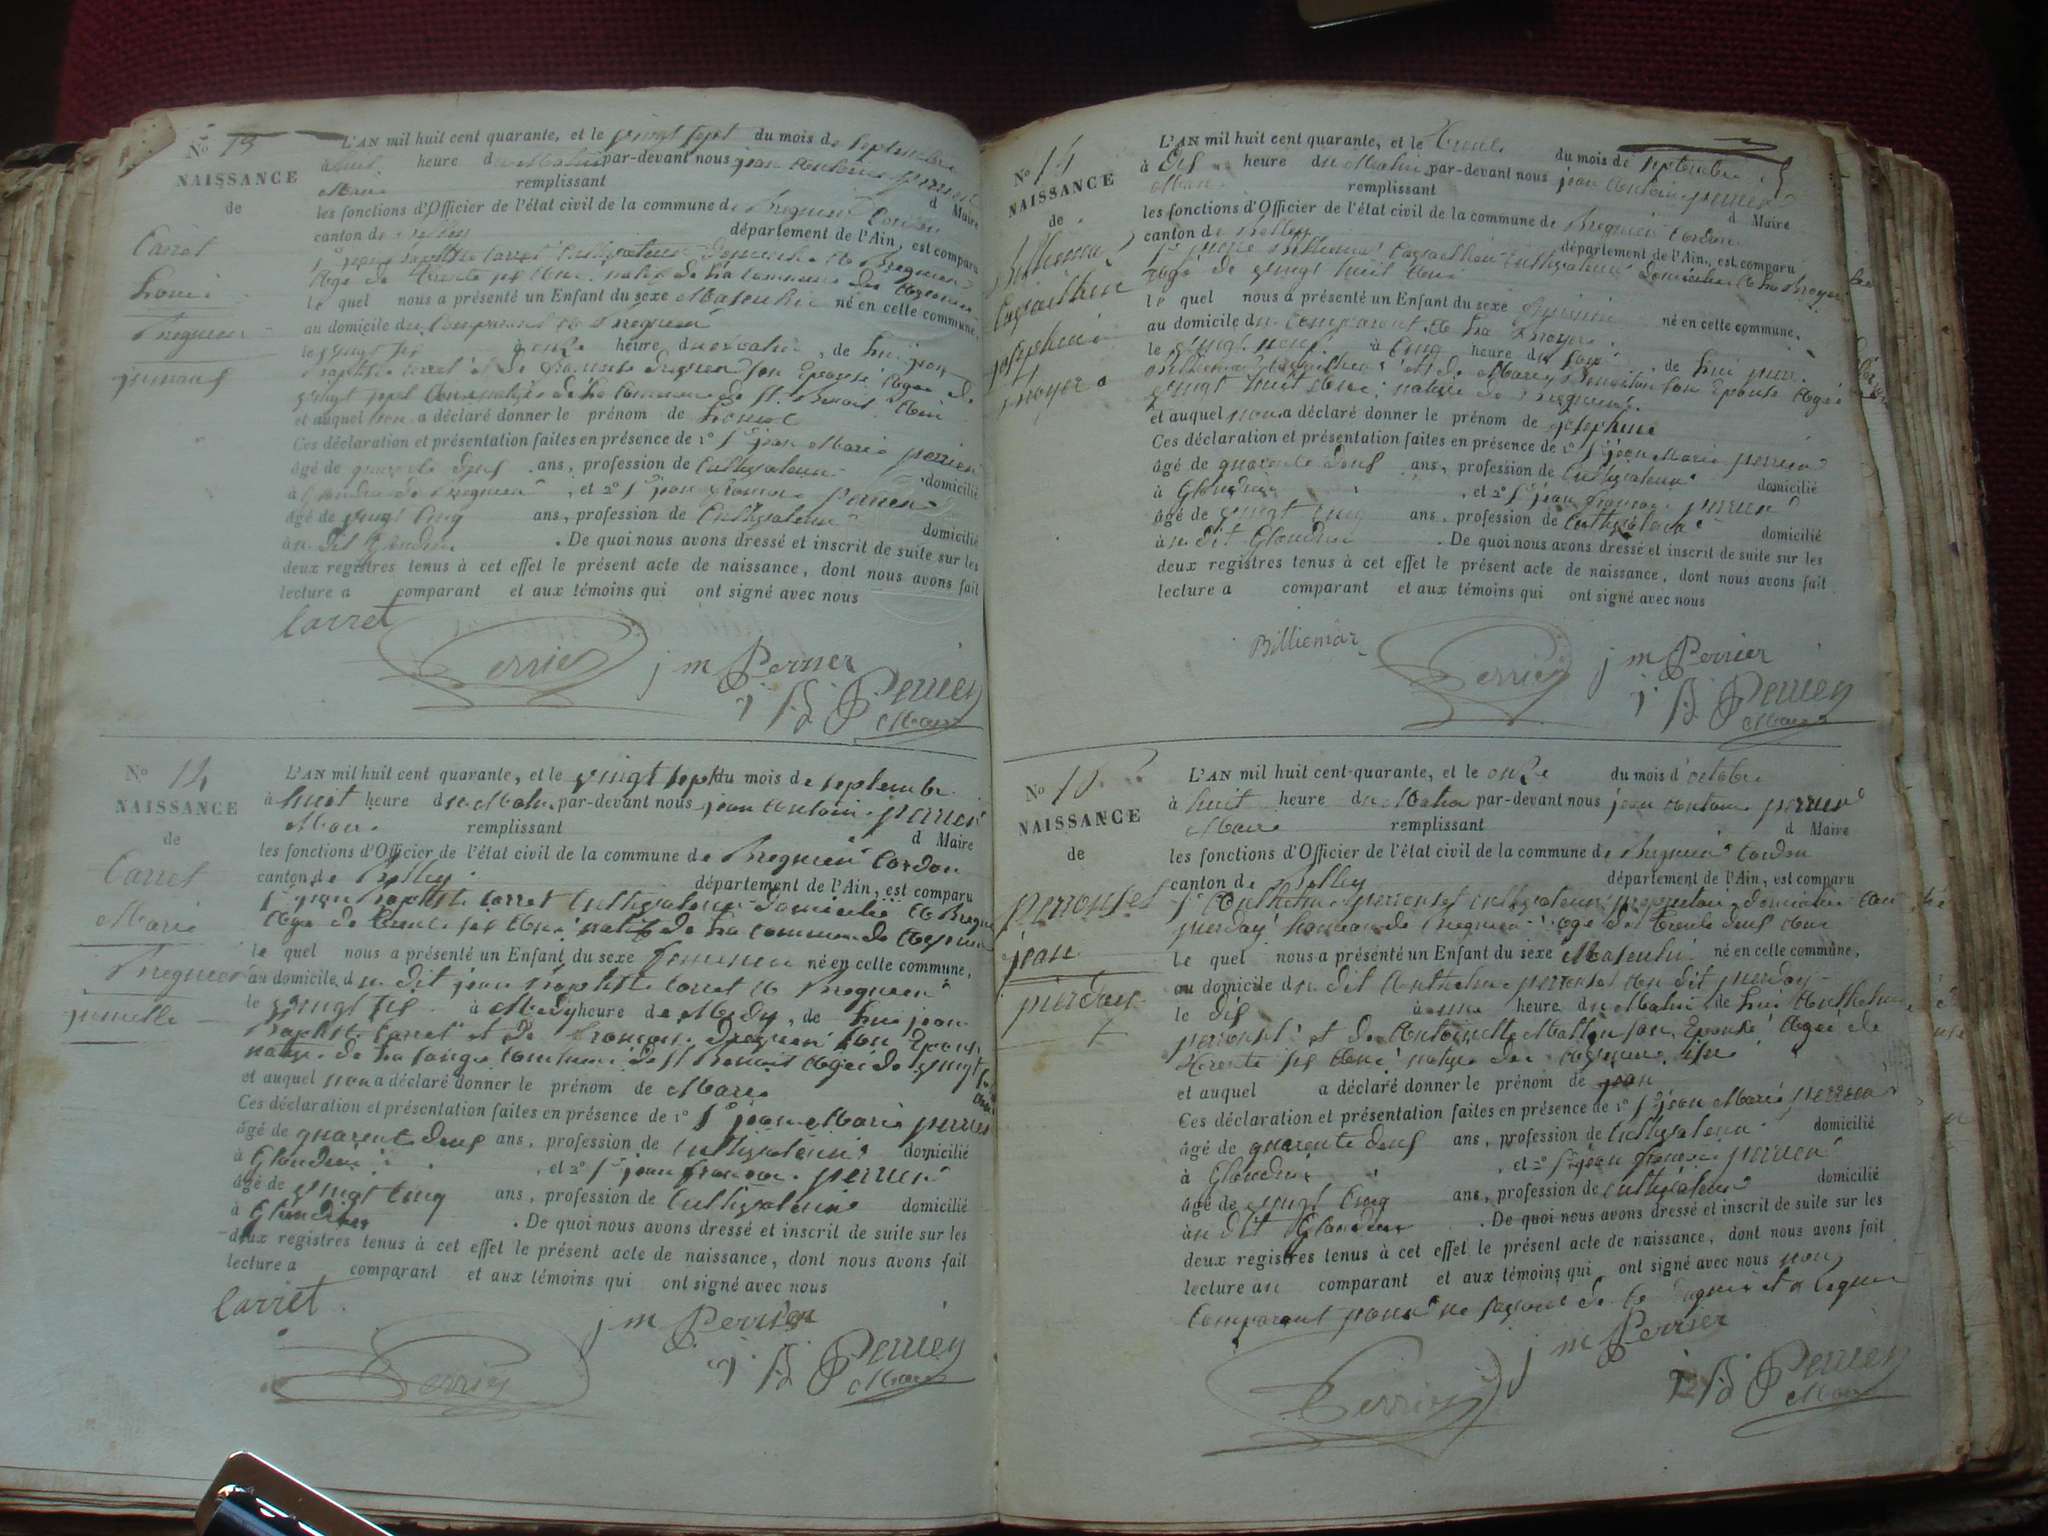 N° 13
NAISSANCE
de
Carret
Louis
Bregnier
jumeaus
L'AN mil huit cent quarante, et le vingt sept du mois de septembre
à huit heure du Matin par-devant nous jean antoine perrier
Maire remplissant d Maire
les fonctions d'Officier de l'état civil de la commune de Bregnier Cordon
canton de Belley département de l'Ain, est comparu
S.r jean baptiste Carret Cultivateur domicilié à Bregnier
Agé de trente six ans natif de la commune de
le quel nous a présenté un Enfant du sexe Masculin né en cette commune,
au domicile du Comparant à Bregnier
le vingt six à onze heure du matin, de lui jean
baptiste Carret et de son Epouse Agée de
vingt sept ans native de la commune de St. Benoit
et auquel nous a déclaré donner le prénom de Louis
Ces déclaration et présentation faites en présence de 1° S.r jean Marie perrier
âgé de quarente deus ans, profession de Cultivateur domicilié
à Glandieu de Bregnier, et 2° S.r jean francois perrier
âgé de vingt cinq ans, profession de Cultivateur domicilié
à u dit Glandieu. De quoi nous avons dressé et inscrit de suite sur les
deux registres tenus à cet effet le présent acte de naissance, dont nous avons fait
lecture a comparant et aux témoins qui ont signé avec nous
Carret
Perrier j m Perrier
j. B Perrier
Maire
N° 14
NAISSANCE
de
Carret
Marie
Bregnier
jumelle
L'AN mil huit cent quarante, et le vingt sept du mois de septembre
à huit heure du Matin par-devant nous jean antoine perrier
Maire remplissant d Maire
les fonctions d'Officier de l'état civil de la commune de Bregnier Cordon
canton de Belley département de l'Ain, est comparu
S.r jean baptiste Carret Cultivateur domicilié à Bregnier
Agé de trente six ans natif de la commune de
le quel nous a présenté un Enfant du sexe feminin né en cette commune,
au domicile du dit jean baptiste Carret à Bregnier
le vingt six à Midy heure de Midy, de lui jean
baptiste Carret et de francoise son Epouse
native de la commune de St Benoit Agée de vingt
et auquel nous a déclaré donner le prénom de Marie
Ces déclaration et présentation faites en présence de 1° S.r jean Marie perrier
âgé de quarente deus ans, profession de Cultivateur domicilié
à Glandieu, et 2° S.r jean francois perrier
âgé de vingt cinq ans, profession de Cultivateur domicilié
à Glandieu. De quoi nous avons dressé et inscrit de suite sur les
deux registres tenus à cet effet le présent acte de naissance, dont nous avons fait
lecture a comparant et aux témoins qui ont signé avec nous
Carret
j m Perrier
Perrier j. B Perrier
Maire
N° 14
NAISSANCE
de
Billiemaz
josephine
L'AN mil huit cent quarante, et le trente du mois de septembre
à dis heure du Matin par-devant nous jean antoine perrier
Maire remplissant d Maire
les fonctions d'Officier de l'état civil de la commune de Bregnier Cordon
canton de Belley département de l'Ain, est comparu
S.r pierre Billiemaz Cultivateur domicilié à
âgé de vingt huit ans
le quel nous a présenté un Enfant du sexe feminin né en cette commune,
au domicile du comparant à la
le vingt neuf à cinq heure du soir, de lui pierre
Billiemaz et de Marie son Epouse Agée
vingt huit ans native de Bregnier
et auquel nous a déclaré donner le prénom de josephine
Ces déclaration et présentation faites en présence de 1° S.r jean Marie perrier
âgé de quarente deus ans, profession de Cultivateur domicilié
à Glandieu, et 2° S.r jean francois perrier
âgé de vingt cinq ans, profession de Cultivateur domicilié
à u dit Glandieu. De quoi nous avons dressé et inscrit de suite sur les
deux registres tenus à cet effet le présent acte de naissance, dont nous avons fait
lecture a comparant et aux témoins qui ont signé avec nous
Billiemaz
Perrier j m Perrier
j. B Perrier
Maire
N° 15
NAISSANCE
de
perronset
jean
L'AN mil huit cent quarante, et le onze du mois d'octobre
à huit heure du Matin par-devant nous jean antoine perrier
Maire remplissant d Maire
les fonctions d'Officier de l'état civil de la commune de Bregnier Cordon
canton de Belley département de l'Ain, est comparu
S.r Anthelme perronset cultivateur propriétaire domicilié au
hameau de Bregnier âgé de trente deus ans
le quel nous a présenté un Enfant du sexe Masculin né en cette commune,
au domicile du dit Anthelme perronset au dit
le dis à une heure du Matin de lui Anthelme
perronset et de Antoinette son Epouse Agée de
trente six ans native de
et auquel a déclaré donner le prénom de jean
Ces déclaration et présentation faites en présence de 1° S.r jean Marie perrier
âgé de quarente deus ans, profession de Cultivateur domicilié
à Glandieu, et 2° S.r jean francois perrier
âgé de vingt cinq ans, profession de cultivateur domicilié
à u dit Glandieu. De quoi nous avons dressé et inscrit de suite sur les
deux registres tenus à cet effet le présent acte de naissance, dont nous avons fait
lecture au comparant et aux témoins qui ont signé avec nous non
Comparant pour ne savoir de ce
j m Perrier
Perrier j. B Perrier
Maire